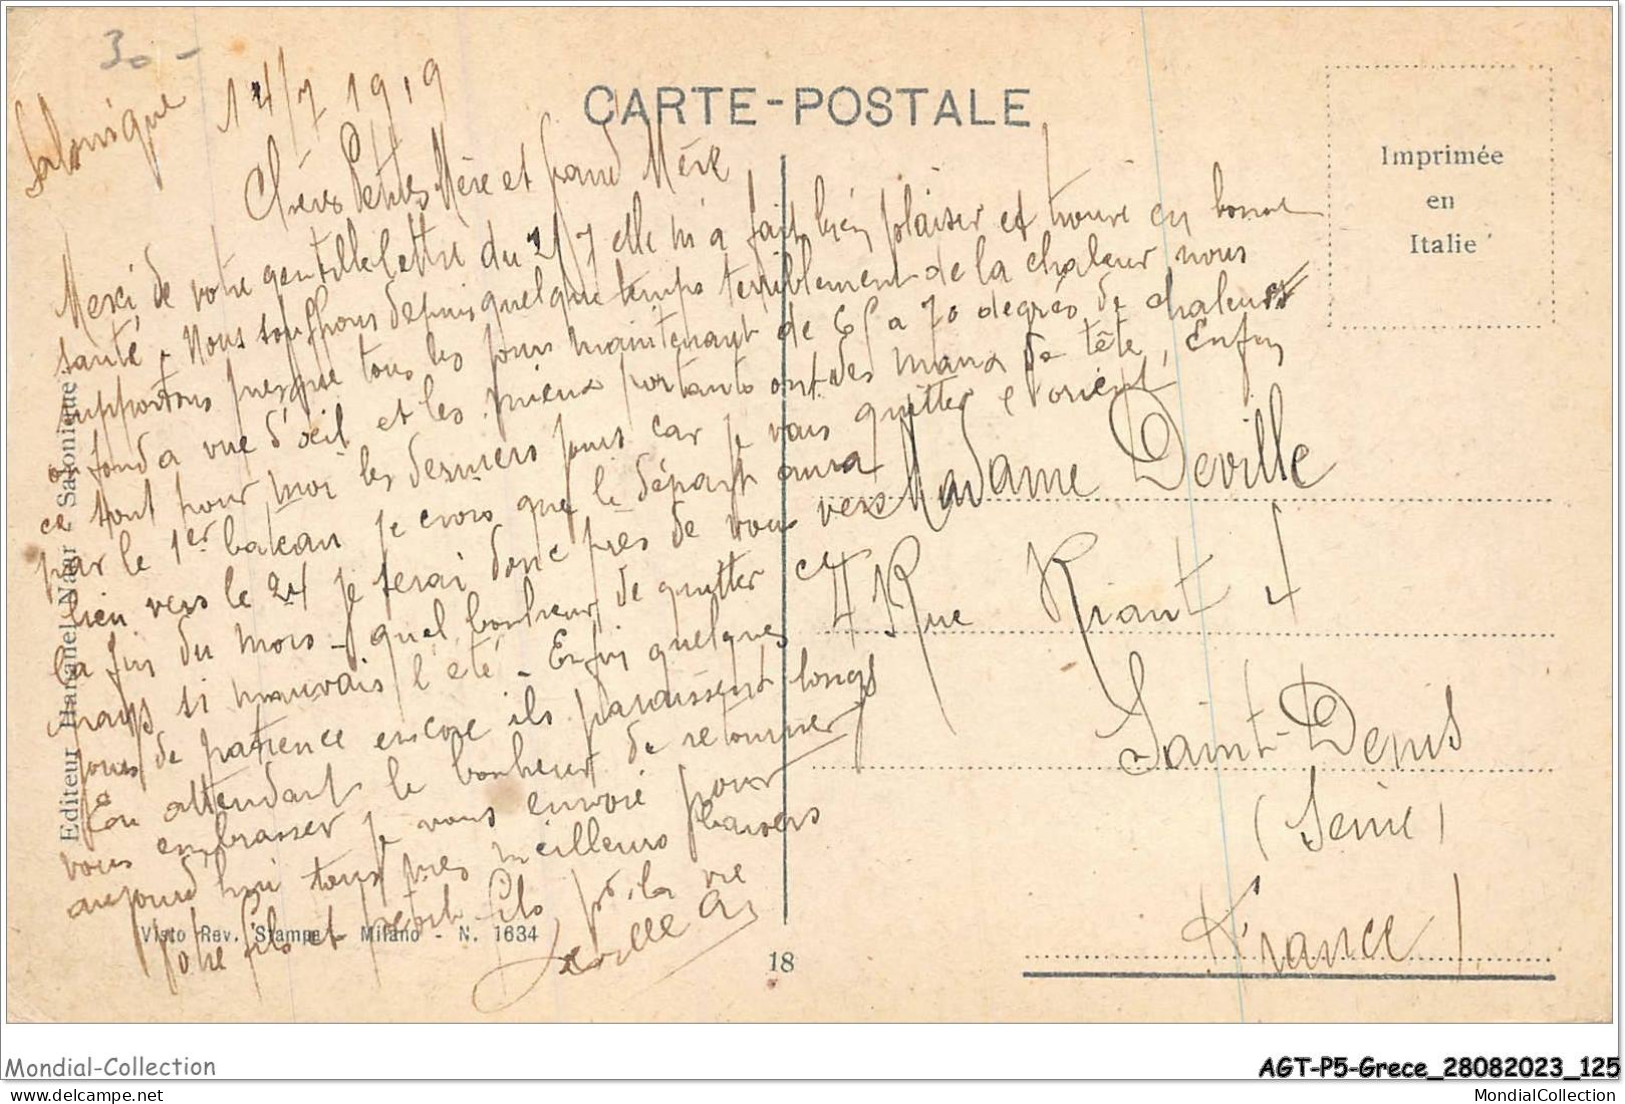 30 -
Salonique 14/7 1919
CARTE-POSTALE
Imprimée
en
Italie
Chères Petites Mère et grand Mère
Merci de votre gentille lettre du 2/7 elle m'a fait bien plaisir et trouvé en bonne
santé. Nous souffrons depuis quelque temps terriblement de la chaleur nous
supportons presque tous les jours maintenant de 65 a 70 degrés de chaleurs
on fond a vue d'œil et les mieux portants ont des maux de tête, Enfin
ce sont pour moi les derniers jours car je vais quitter l'orient
par le 1er bateau je crois que le départ aura
lieu vers le 24 je serai donc près de vous vers
la fin du mois - quel bonheur de quitter ce
pays si mauvais l'été - Enfin quelques
jours de patience encore ils paraissent longs
En attendant le bonheur de retourner
vous embrasser je vous envoie pour
aujourd'hui tous mes meilleurs baisers
Votre fils et petit-fils pr la vie
Deville
Madame Deville
4 Rue Riant 4
Saint-Denis
(Seine)
France
Editeur Hananel Naar Salonique
Visto Rev. Stampa - Milano - N. 1634
18
Mondial-Collection
AGT-P5-Grece_28082023_125
MondialCollection